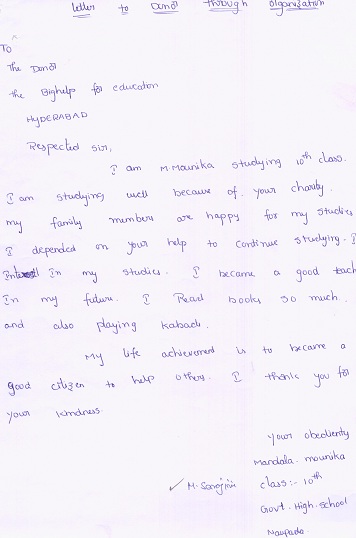 Letter to Donor through organization
To
The Donor
the Bighelp for education
HYDERABAD
Respected sir,
I am M.Mounika studying 10th class.
I am studying well because of your charity.
my family members are happy for my studies
I depended on your help to continue studying. I
Interest In my studies. I became a good teach
In my future. I Read books so much.
and also playing kabadi.
My life achievement is to became a
good citizen to help others. I thank you for
your kindness
your obedienty
Mandala. mounika
✓ M. Sarojini class:- 10th
Govt. High. school
Naupada.